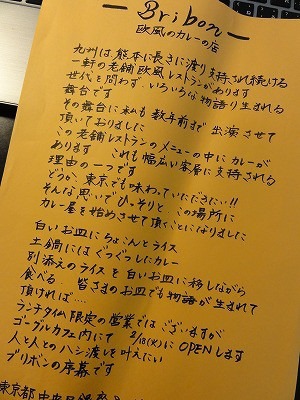 ー Bribon ー
欧風のカレーの店
九州は熊本に長きに渡り支持され続ける
一軒の老舗欧風レストランがあります
世代を問わず、いろいろな物語り生まれる
舞台です
その舞台に私も数年前まで出演させて
頂いておりました
この老舗レストランのメニューの中にカレーが
あります これも幅広い客層に支持される
理由の一つです
どうか、東京でも味わっていただきたい!!
そんな思いでひっそりと、この場所に
カレー屋を始めさせて頂くことになりました
白いお皿にちょこんとライス
土鍋にはぐつぐつしたカレー
別添えのライスを白いお皿に移しながら
食べる 皆さまのお皿でも物語が生まれて
頂ければ…
ランチタイム限定の営業ではございますが
ゴーグルカフェ内にて 2/18(火)にOPENします
人と人とのハシ渡しを叶えたい
ブリボンの序幕です
東京都中央区銀座